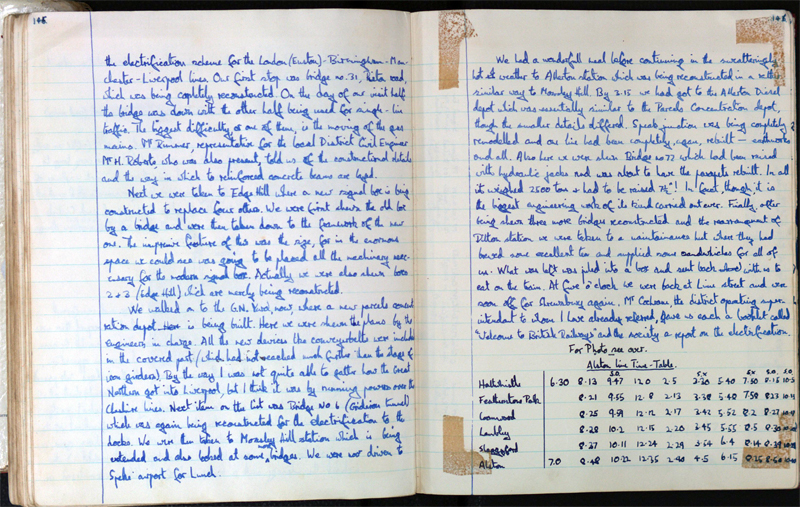 145
the electrification scheme for the London (Euston) - Birmingham - Man-
chester - Liverpool lines. Our first stop was bridge no. 31, road,
which was being completely reconstructed. On the day of our visit half
the bridge was down with the other half being used for single - line
traffic. The biggest difficulty, or one of them, is the moving of the gas
mains. Mr Rimmer, representative for the local District Civil Engineer
Mr H. Roberts who was also present, told us of the constructional details
and the way in which the reinforced concrete beams are
Next we were taken to Edge Hill where a new signal box is being
constructed to replace four others. We were first shewn the old box
by a bridge and were then taken down to the framework of the new
one. The impressive feature of this was the size, for in the enormous
space we could see was going to be placed all the machinery nec-
essary for the modern signal box. Actually we were also shewn boxes
2 + 3 (Edge Hill) which are merely being reconstructed.
We walked on to the G.N. Yard, now, where a new parcels concent-
ration depot is being built. Here we were shewn the plans by the
engineers in charge. All the new devices like conveyorbelts were included
in the covered part (which had not reached much further than the stage of
iron girders). By the way I was not quite able to gather how the Great
Northern got into Liverpool, but I think it was by running powers over the
Cheshire Lines. Next item on the list was Bridge No 6 (tunnel)
which was again being reconstructed for the electrification to the
docks. We were then taken to Mossley Hill station which is being
extended and also looked at some bridges. We were now driven to
Speke airport for Lunch.
We had a wonderfull meal before continuing in the swelteringly
hot weather to Allerton station which was being reconstructed in a rather
similar way to Mossley Hill. By 2.15 we had got to the Allerton Diesel
depot which was essentially similar to the Parcels Concentration depot,
though the smaller details differed. Speke junction was being completely
remodelled and one line had been completely, again, rebuilt - earthworks
and all. Also here we were shewn Bridge No 77 which had been raised
with hydraulic jacks and was about to have the parapets rebuilt. In
all it weighed 2500 tons & had to be raised 7½"! In fact though it is
the biggest engineering work of its kind carried out ever. Finally, after
being shewn three more bridges reconstructed and the rearrangement of
Ditton station we were taken to a maintainance hut where they had
brewed some excellent tea and supplied some sandwiches for all of
us. What was left was piled into a box and sent back with us to
eat on the train. At five o'clock we were back at Lime street and were
soon off for Shrewsbury again. Mr Cochrane, the district operating super-
intendant to whom I have already referred, gave us each a booklet called
"Welcome to British Railways" and the society a report on the electrification.
For Photo see over.
Alston Line Time-Table.
S.O. S.X S.X S.O. S.O.
Haltwhistle 6.30 8.13 9.47 12.0 2.5 3.30 5.40 7.50 8.15
Featherstone Park 8.21 9.55 12.8 2.13 3.38 5.48 7.58 8.23
Coanwood 8.25 9.59 12.12 2.17 3.42 5.52 8.2 8.27
Lambley 8.28 10.2 12.15 2.20 3.45 5.55 8.5 8.30
Slaggyford 8.37 10.11 12.24 2.29 3.54 6.4 8.14 8.39
Alston 7.0 8.48 10.22 12.35 2.40 4.5 6.15 8.25 8.50